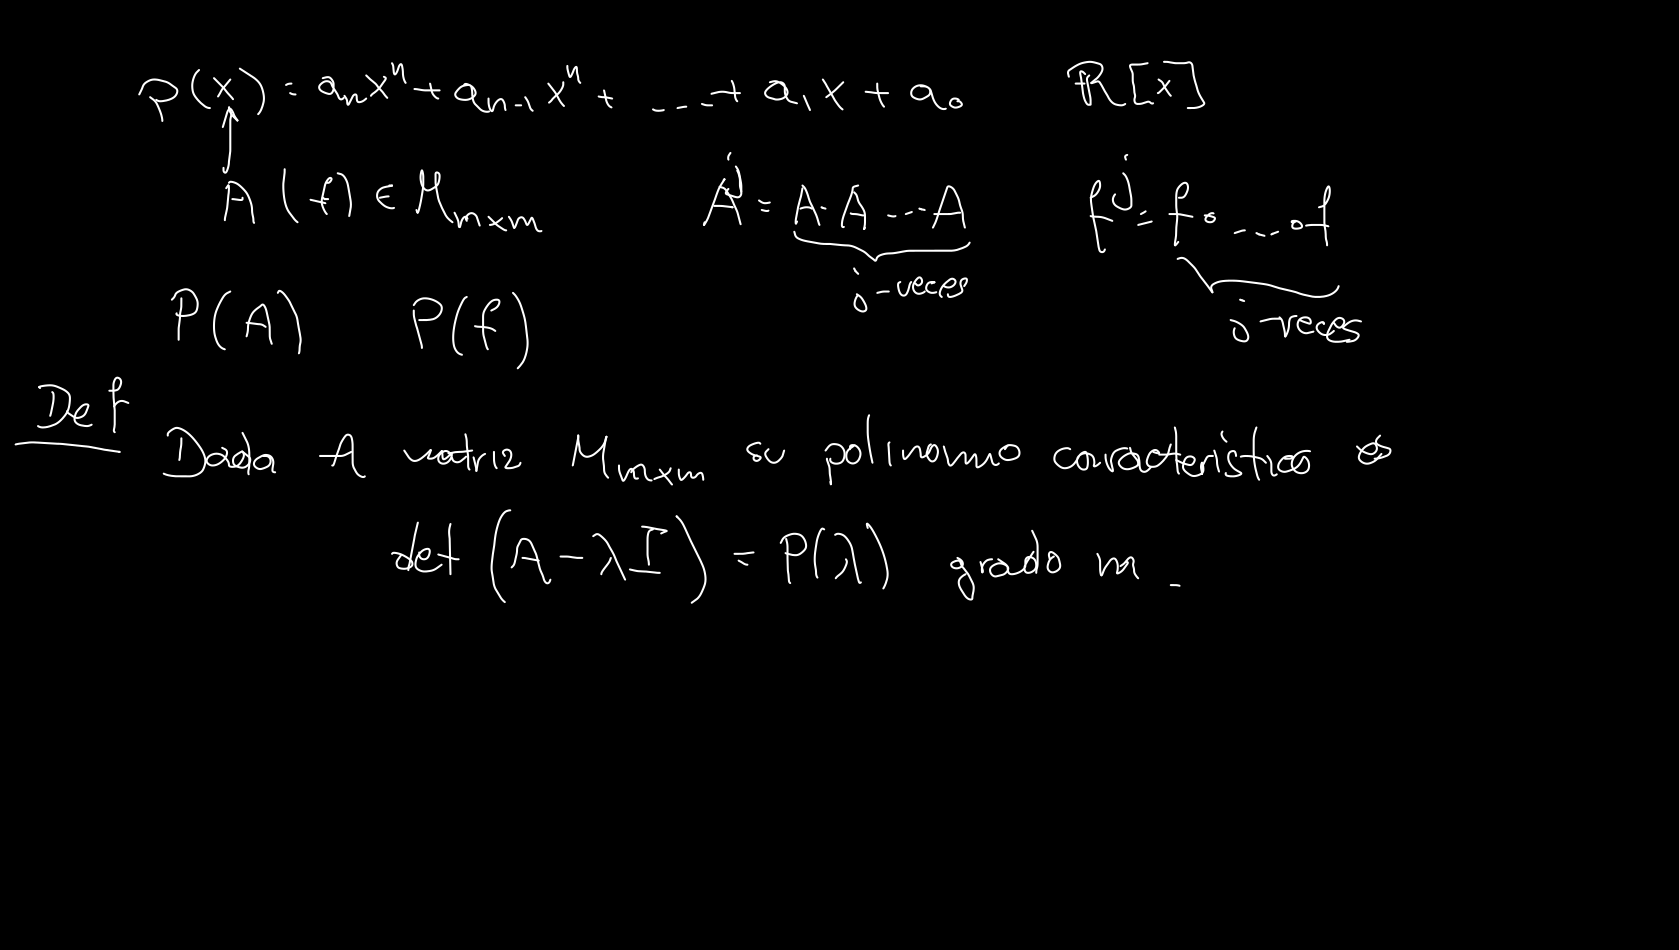 P(x) = aₙxⁿ + aₙ₋₁xⁿ + ---- + a₁x + a₀ ℝ[x]
↑
A (f) ∈ Mₘₓₘ Aʲ = A·A...A fʲ = f∘...∘f
j-veces
j-veces
P(A) P(f)
Def
Dada A matriz Mₘₓₘ su polinomio caracteristico es
det (A - λI) = P(λ) grado m.